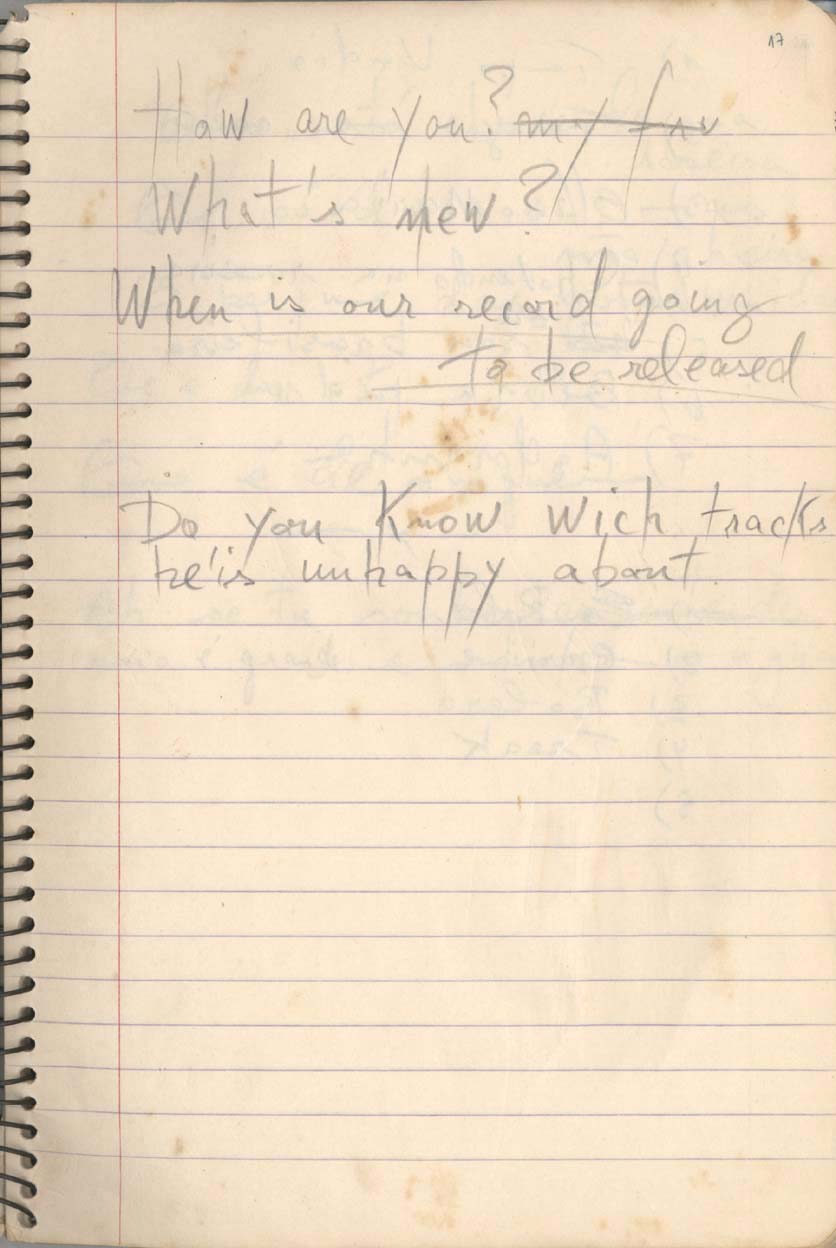 17
How are you? my fav
What's new?
When is our record going
to be released
Do you know wich tracks
he'is unhappy about.